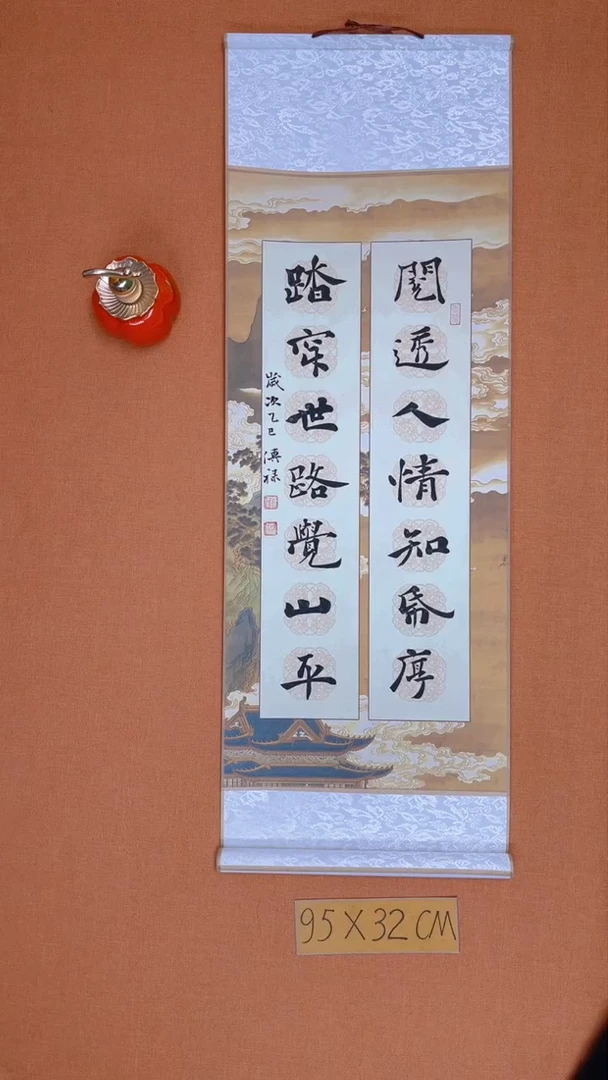 閱透人情知帋厚
踏穿世路覺山平
歲次乙巳 溥禄
95X32CM